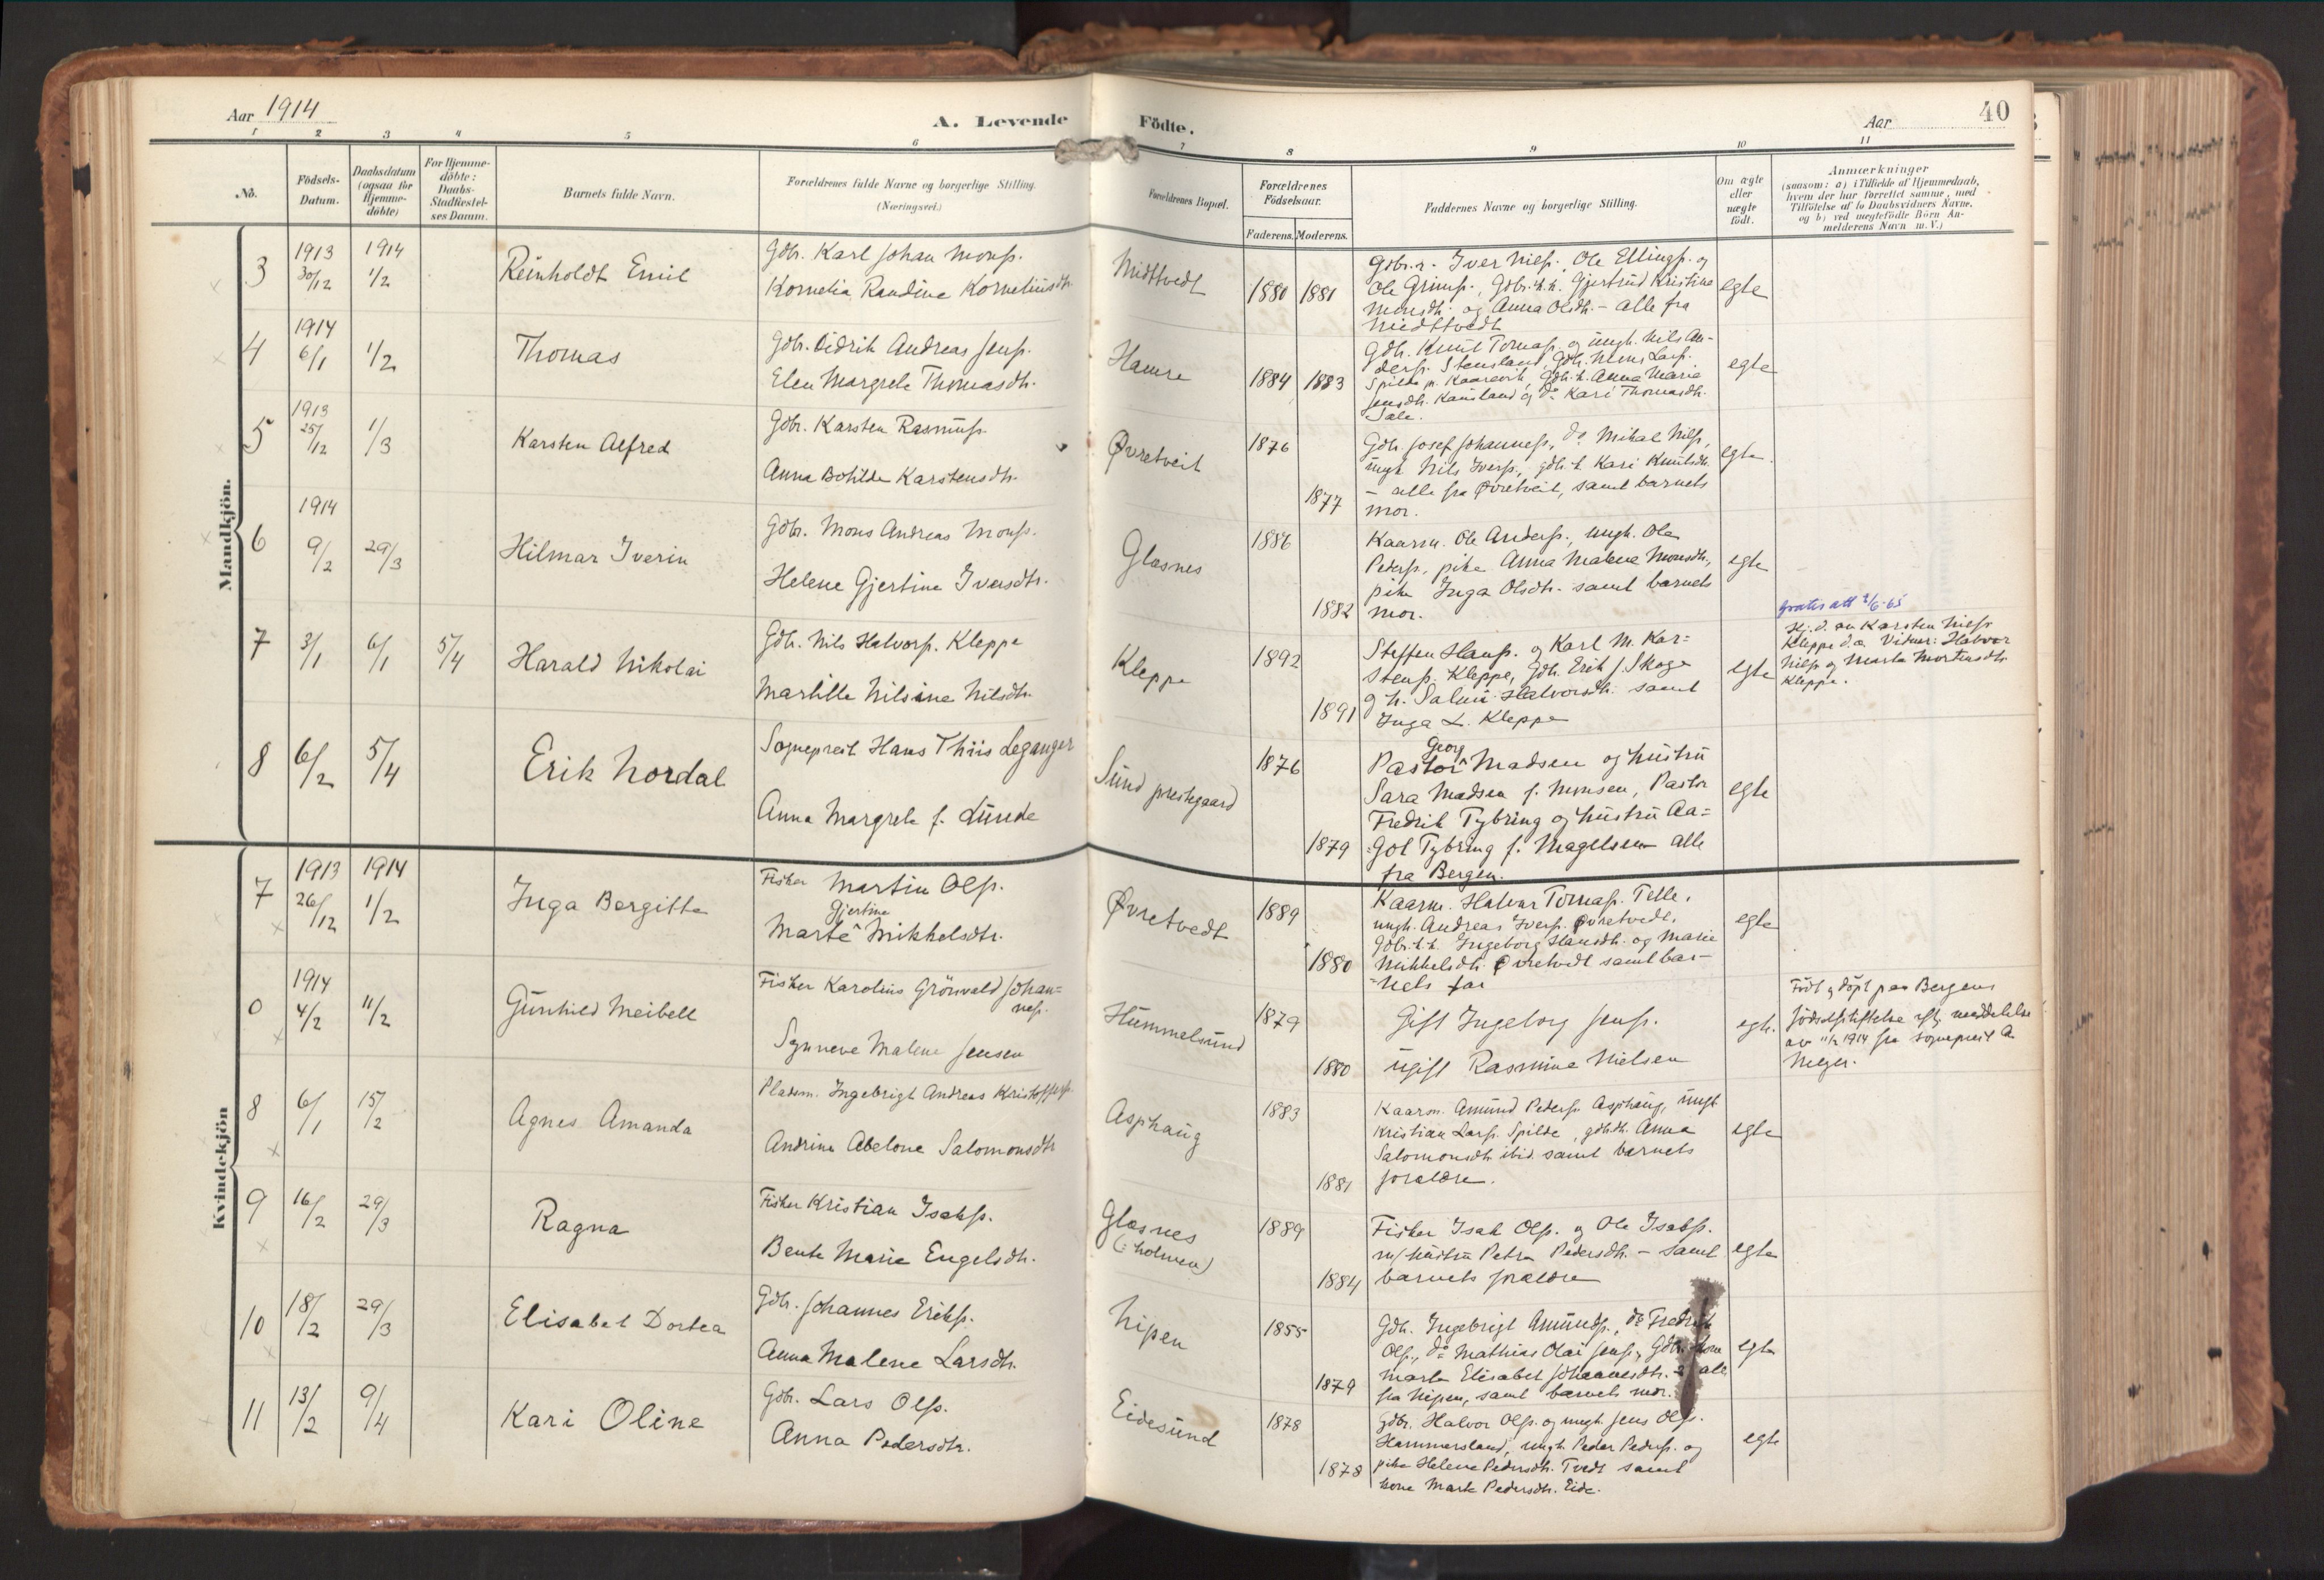 Aar 1914
A. Levende Födte.
Aar
40
1 2 3 4 5 6 7 8 9 10 11
No.
Födsels-Datum.
Daabsdatum (ogsaa for Hjemme-döbte)
For Hjemme-döbte: Daabs-Stadfæstel-ses Datum.
Barnets fulde Navn.
Forældrenes fulde Navne og borgerlige Stilling.
(Næringsvei.)
Forældrenes Bopæl.
Forældrenes Födselsaar.
Faderens. Moderens.
Faddernes Navne og borgerlige Stilling.
Om ægte eller uægte födt.
Anmærkninger
(saasom: a) i Tilfælde af Hjemmedaab,
hvem der har forrettet samme, med
Tilföielse af to Daabsvidners Navne,
og b) ved uægtefödte Börn An-
melderens Navn m. V.)
Mandkjön.
3
1913 30/12
1914 1/2
Reinholdt Emil
Gbr. Karl Johan Monss.
Kornelia Randine Korneliusdtr.
Midttvedt
1880 1881
Gbr.r. Iver Nilss. Ole Ellings. og
Ole Grimss., Gbr.k.k. Gjertrud Kristine
Monsdtr. og Anna Olsdtr. - alle fra
Midttvedt
egte
4
1914 6/1
1/2
Thomas
Gbr. Didrik Andreas Jenss.
Elen Margrete Thomasdtr.
Hamre
1884 1883
Gbr. Knut Tomass. og ungk. Nils An-
derss. Stensland, Gbr. Mons Larss.
Spilde, Gbr.k. Anna Marie
Jensdtr. Kausland og do Kari Thomasdtr.
Sæle.
egte
5
1913 25/12
1/3
Karsten Alfred
Gbr. Karsten Rasmuss.
Anna Bohilde Karstensdtr.
Øvretveit
1876
1877
Gbr. Josef Johanness., do Mikal Nilss.,
ungk Nils Iverss., gbr.k. Kari Knutsdtr.
- alle fra Øvretveit, samt barnets
mor.
egte.
6
1914 9/2
29/3
Hilmar Iverin
Gbr. Mons Andreas Monss.
Helene Gjertine Iversdtr.
Glæsnes
1886
1882
Kaarm. Ole Anderss., ungk. Ole
Pederss., pike Anna Malene Monsdtr.,
pike Inga Olsdtr. samt barnets
mor.
egte
7
3/1
6/1
5/4
Harald Nikolai
Gbr. Nils Halvorss. Kleppe
Martille Nilsine Nilsdtr.
Kleppe
1892
1891
Steffen Hanss. og Karl M. Kar=
stenss. Kleppe, Gbr. Erik J. Skoge
g k. Salmi Halvorsdtr. samt
Inga L. Kleppe
egte
Gratis att 2/6-65
Hj.d. av Karsten Nilss.
Kleppe d.a. Vidner: Halvor
Nilss. og Marta Mortensdtr.
Kleppe.
8
6/2
5/4
Erik Nordal
Sogneprest Hans Thiis Leganger
Anna Margrete f. Lunde
Sund prestegaard
1876
1879
Georg
Pastor ^ Madsen og hustru
Sara Madsen f. Monsen, Pastor
Fredrik Tybring og hustru Aa=
=got Tybring f. Magelssen alle
fra Bergen.
egte
Kvindekjön
7
1913 26/12
1914 1/2
Inga Bergitte
Fisker Martin Olss.
Gjertine
Marte ^ Mikkelsdtr.
Øvretvedt
1889
1880
Kaarm. Halvar Tomass. Telle,
ungk. Andreas Iverss. Øvretvedt,
Gbr.k.k. Ingeborg Hansdtr. og Marie
Mikkelsdtr. Øvretvedt samt bar-
nets far
egte
0
1914 4/2
11/2
Gunhild Meibell
Fisker Karolius Grönvald Johan=
ness.
Synneve Malene Jensen
Hummelsund
1879
1880
Gift Ingeborg Jenss.
ugift Rasmine Nielsen
egte.
Födt og döpt paa Bergens
födselsstiftelse eft. meddelelse
av 11/2 1914 fra sogneprest A.
Meyer.
8
6/1
15/2
Agnes Amanda
Pladsm. Ingebrigt Andreas Kristofferss.
Andrine Abelone Salomonsdtr
Asphaug
1883
1881
Kaarm. Amund Pederss. Asphaug, ungk.
Kristian Larss. Spilde, gbr.k. Anna
Salomonsdtr. ibid. samt barnets
forældre.
egte
9
16/2
29/3
Ragna
Fisker Kristian Isakss.
Bente Marie Engelsdtr.
Glæsnes
(: holmen)
1889
1884
Fisker Isak Olss. og Ole Isakss.
m/hustru Petra Pedersdtr. - samt
barnets forældre
egte
10
18/2
29/3
Elisabet Dortea
Gbr. Johannes Erikss.
Anna Malene Larsdtr.
Nipen
1855
1879
Gbr. Ingebrigt Amunds., do Fredrik
Olss., do Mathias Olai Jenss., Gbr. kone
Marta Elisabet Johannesdtr. - alle
fra Nipen, samt barnets mor.
egte
11
13/2
9/4
Kari Oline
Gbr. Lars Olss.
Anna Pedersdtr.
Eidesund
1878
1878
Gbr. Halvor Olss. og ungk. Jens Olss.
Hammersland, ungk. Peder Pederss. og
pike Helene Pedersdtr. Tvedt samt
kone Marte Pedersdtr. Eide.
egte